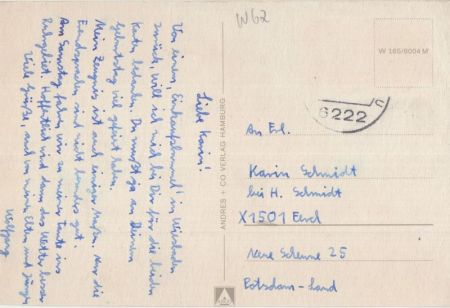 Liebe Karin!
Von einem "Einkaufsbummel" in Wiesbaden
zurück, will ich mich bei Dir für die lieben
Karten bedanken. Du mußt ja an Deinem
Geburtstag viel gefeiert haben.
Mein Zeugnis ist auch einigermaßen. Nur die
Fremdsprachen sind nicht besonders gut.
Am Samstag fahren wir zu meiner Tante ins
Ruhrgebiet. Hoffentlich wird dann das Wetter besser
Viele Grüße, auch von meinen Eltern und Jürgen
Wolfgang
W62
ANDRES + CO VERLAG HAMBURG
W 165/8004 M
6222
An Frl.
Karin Schmidt
bei H. Schmidt
X1501 Eerd
Neue Scheune 25
Potsdam-Land